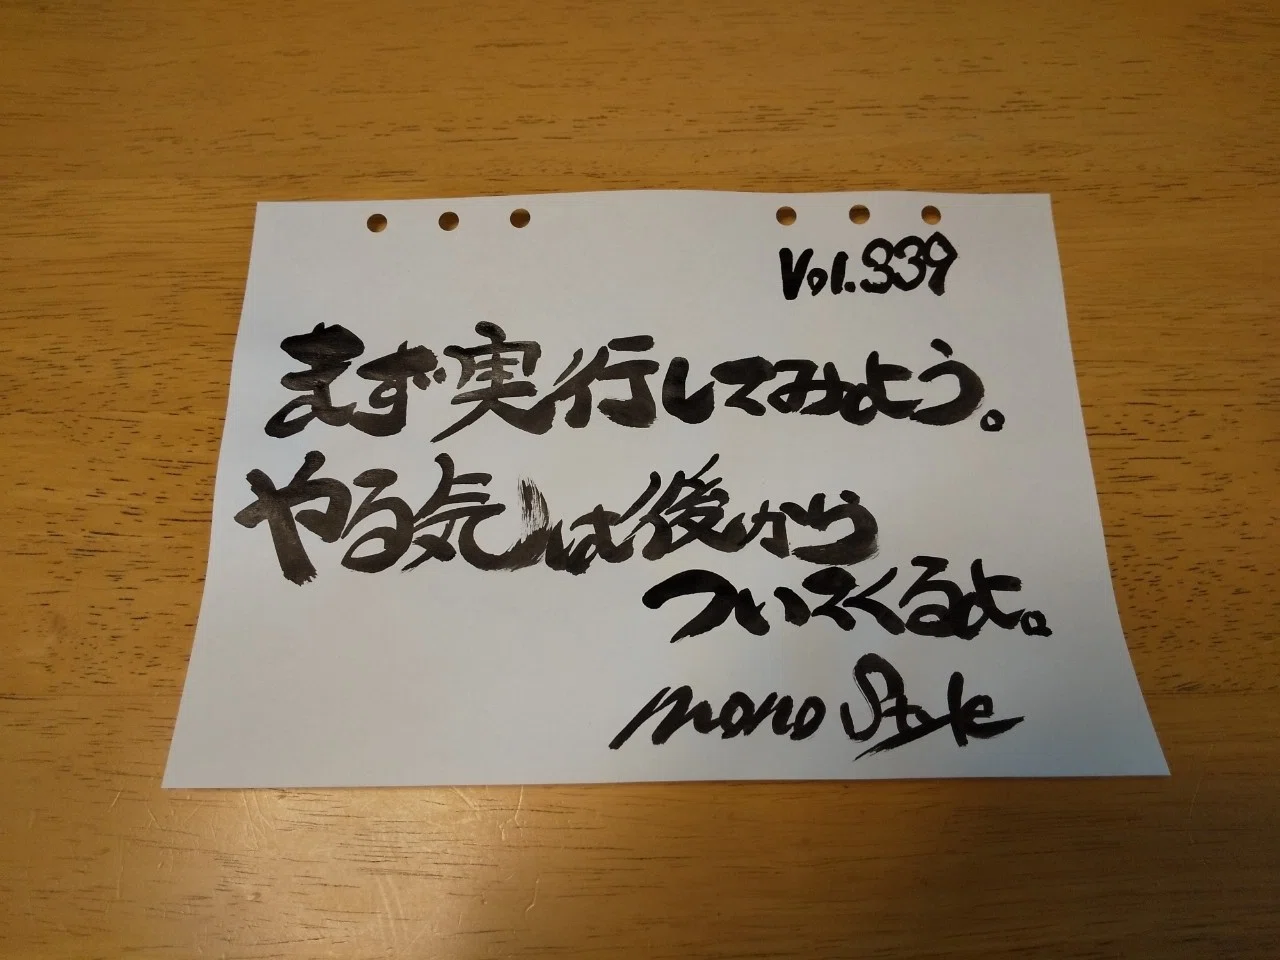 Vol.839
まず実行してみよう。
やる気は後から
ついてくるよ。
mono Style